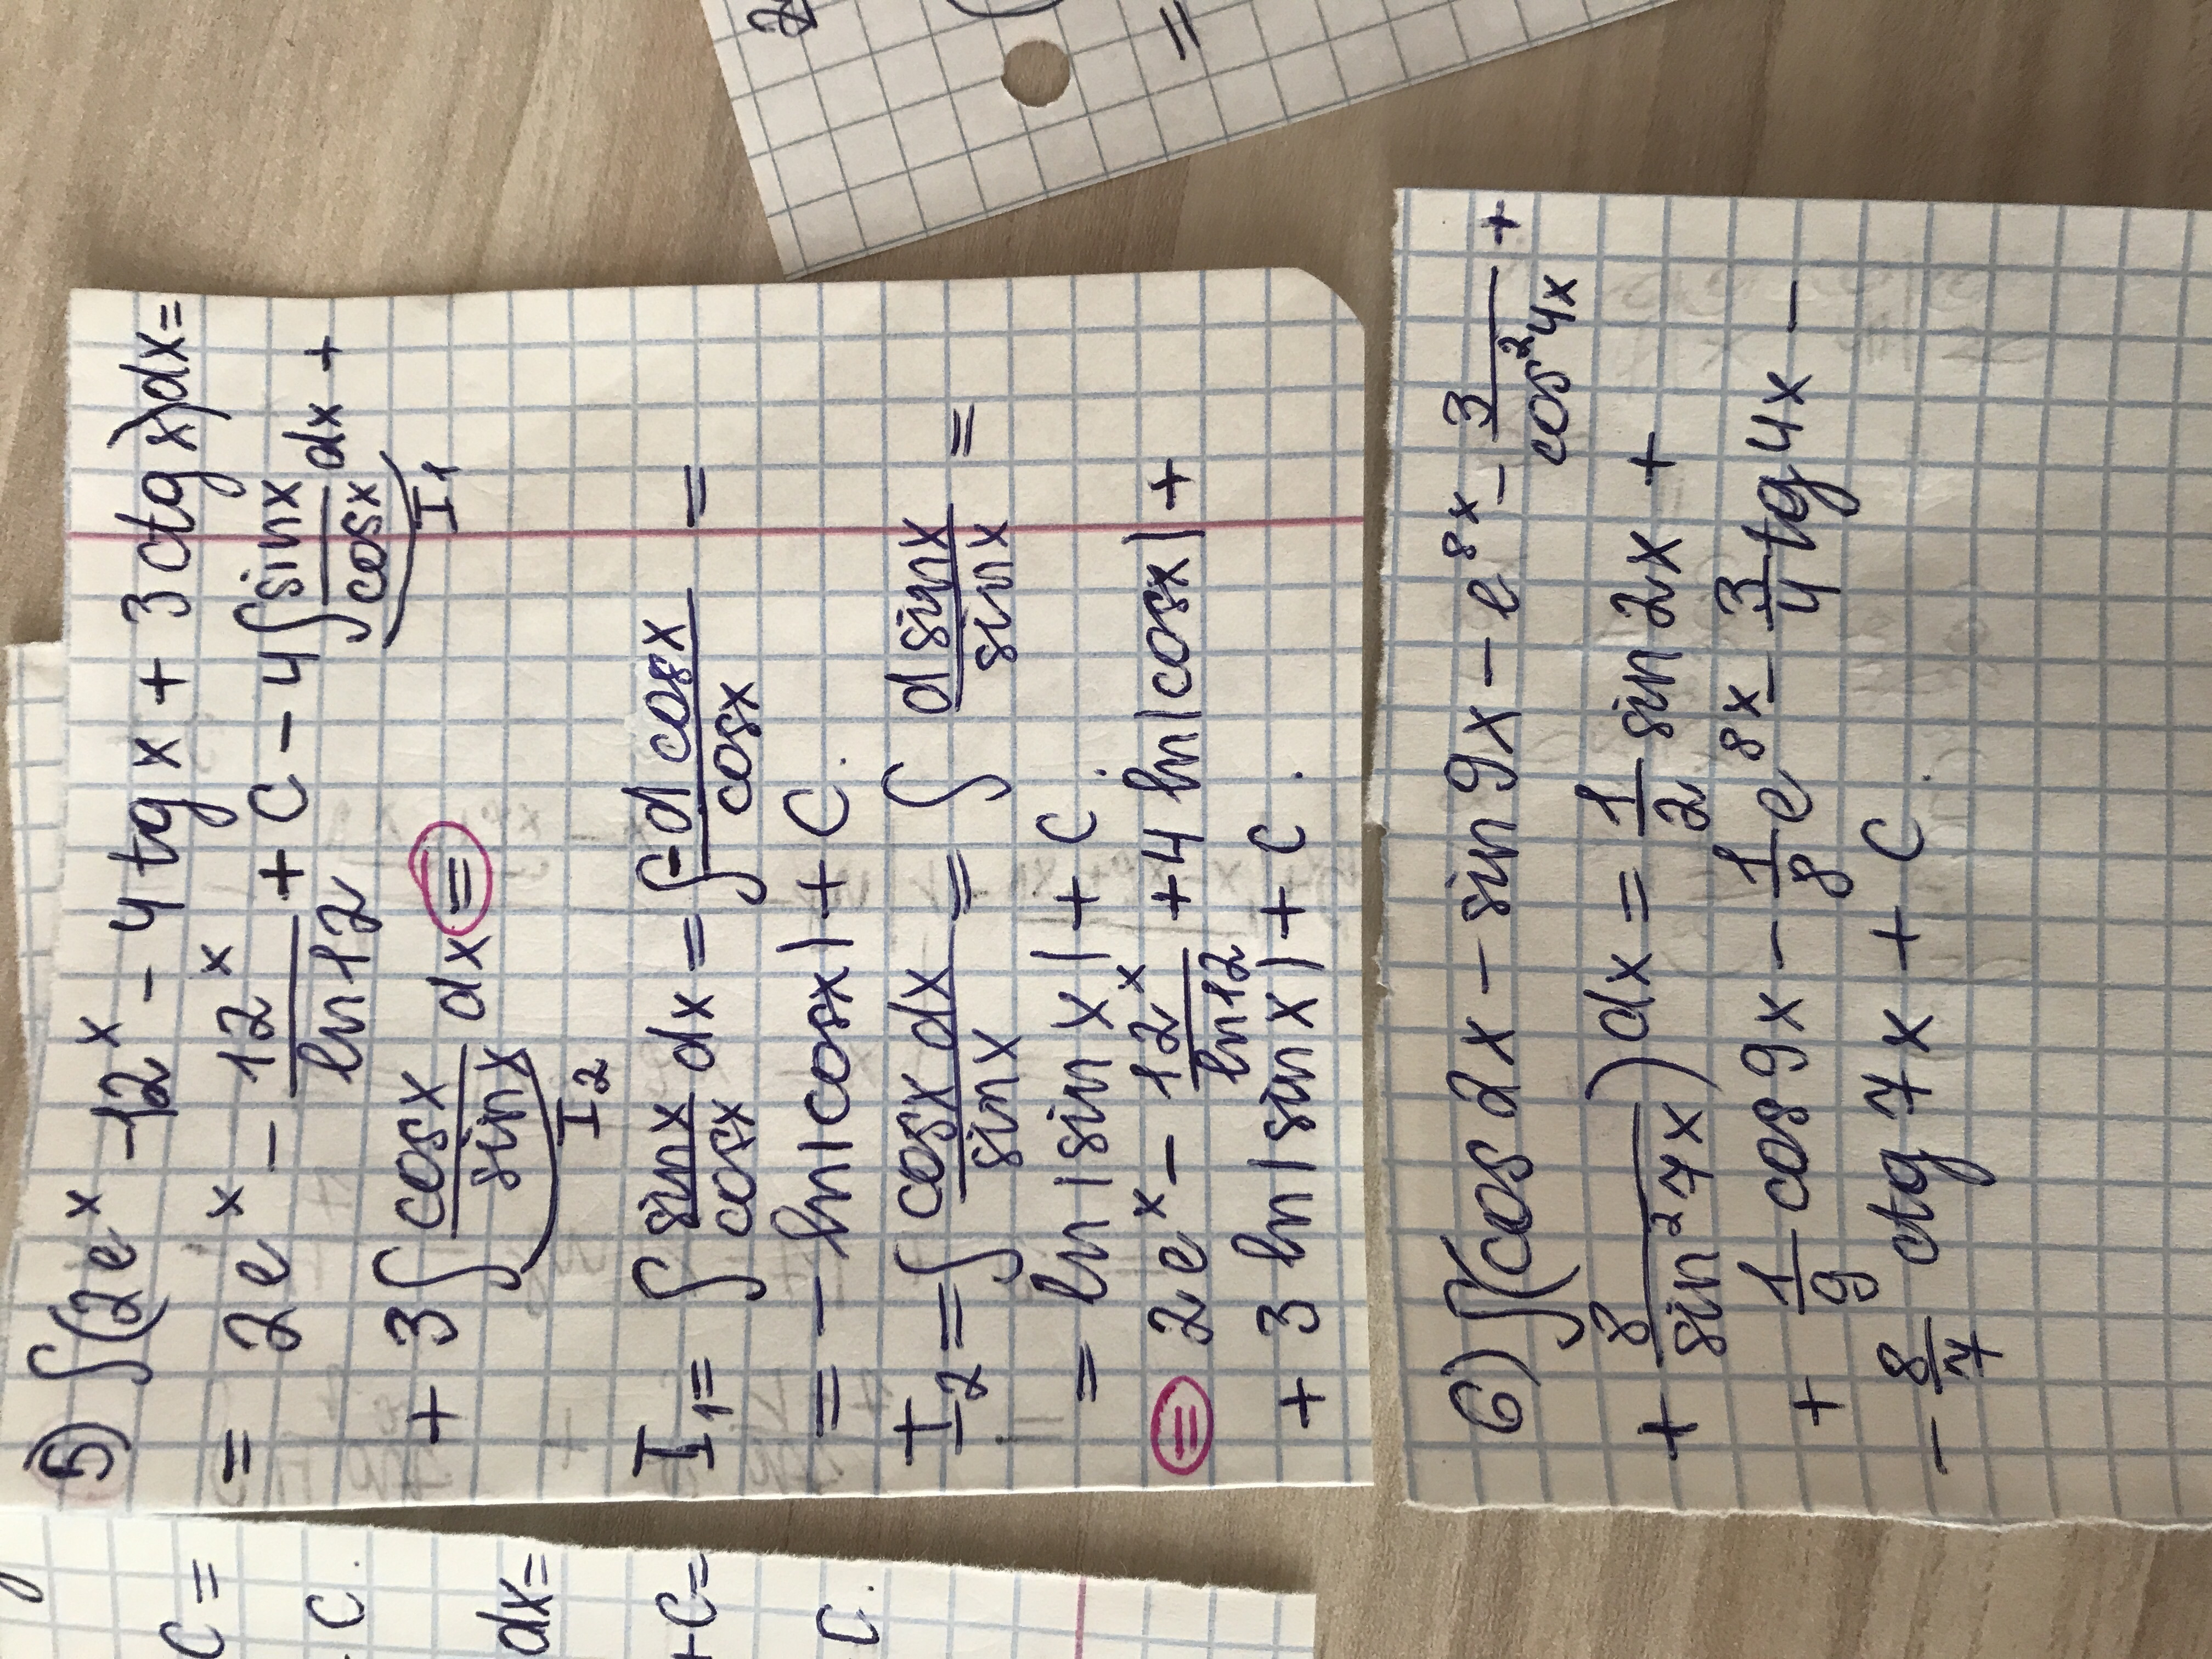 5) ∫(2e^x - 12^x - 4tg x + 3ctg x)dx=
= 2e^x - 12^x/ln12 + C - 4∫sinx/cosx dx +
I1
+ 3∫cosx/sinx dx =
I2
I1= ∫sinx/cosx dx = ∫-d cosx/cosx =
= - ln|cosx| + C.
I2 = ∫cosx dx/sinx = ∫d sinx/sinx =
= ln|sinx| + C.
= 2e^x - 12^x/ln12 + 4ln|cosx| +
+ 3 ln|sinx| + C.
6) ∫(cos2x - sin9x - e^8x - 3/cos²4x +
+ 8/sin²7x)dx = 1/2 sin2x +
+ 1/9 cos9x - 1/8 e^8x - 3/4 tg4x -
- 8/7 ctg7x + C.
C =
C.
dx=
+C=
C.
=